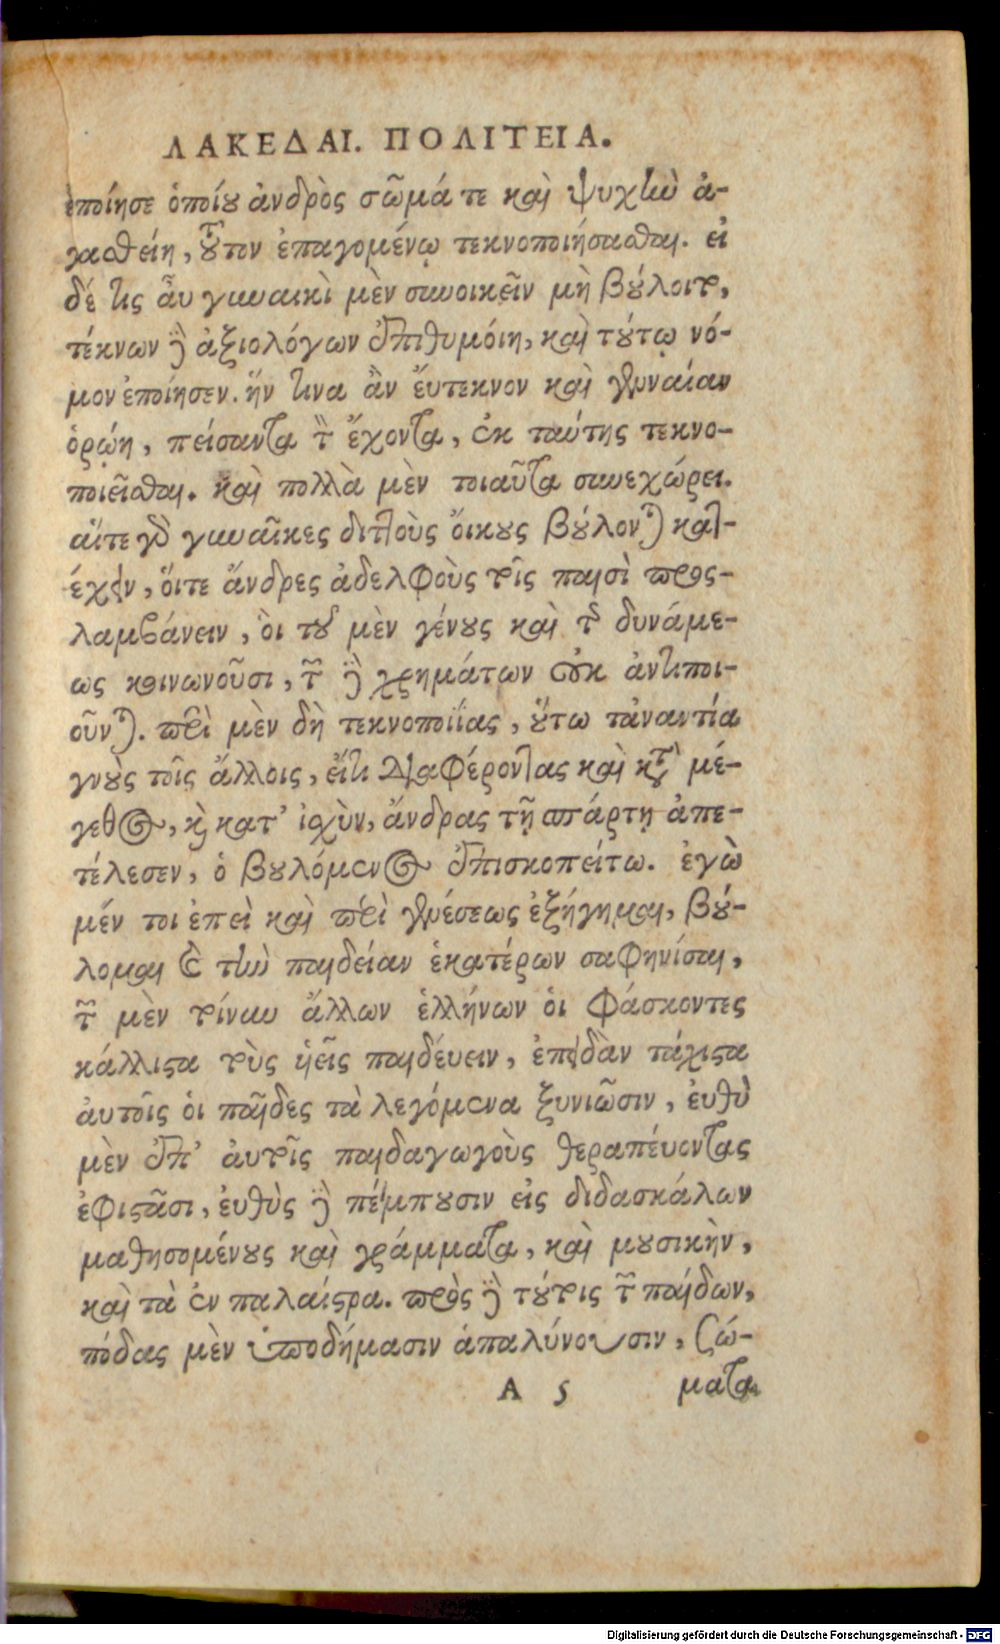 ΛΑΚΕΔΑΙ. ΠΟΛΙΤΕΙΑ.
ἐποίησε ὁποίου ἀνδρὸς σῶμά τε καὶ ψυχὴν ἀ-
γασθείη, τοῦτον ἐπαγομένῳ τεκνοποιήσασθαι. εἰ
δέ τις ἂυ γυναικὶ μὲν συνοικεῖν μὴ βούλοιτο,
τέκνων δὲ ἀξιολόγων ἐπιθυμόιη, καὶ τούτῳ νό-
μον ἐποίησεν. ἥν τινα ἂν ἔυτεκνον καὶ γενναίαν
ὁρῴη, πείσαντα τὸν ἔχοντα, ἐκ ταύτης τεκνο-
ποιεῖσθαι. καὶ πολλὰ μὲν τοιαῦτα συνεχώρει.
αἵτε γὰρ γυναῖκες διττοὺς ὄικους βούλονται κατ-
έχειν, ὅιτε ἄνδρες ἀδελφοὺς τοῖς παισὶ προς-
λαμβάνειν, ὁι τοῦ μὲν γένους καὶ τῆς δυνάμε-
ως κοινωνοῦσι, τῶν δὲ χρημάτων οὐκ ἀντιποι-
οῦνται. περὶ μὲν δὴ τεκνοποιΐας, ὅυτω τἀναντία
γνοὺς τοῖς ἄλλοις, ἔιτι διαφέροντας καὶ κατὰ μέ-
γεθος, καὶ κατ' ἰσχὺν, ἄνδρας τῇ σπάρτῃ ἀπε-
τέλεσεν, ὁ βουλόμενος ἐπισκοπείτω. ἐγὼ
μέν τοι ἐπεὶ καὶ περὶ γενέσεως ἐξήγημαι, βού-
λομαι καὶ τὴν παιδείαν ἑκατέρων σαφηνίσαι,
τῶν μὲν τοίνυν ἄλλων ἑλλήνων ὁι φάσκοντες
κάλλιστα τοὺς ὑιεῖς παιδέυειν, ἐπειδὰν τάχιστα
ἀυτοῖς ὁι παῖδες τὰ λεγόμενα ξυνιῶσιν, ἐυθὺ
μὲν ἐπ' ἀυτοῖς παιδαγωγοὺς θεραπέυοντας
ἐφιστᾶσι, ἐυθὺς δὲ πέμπουσιν εἰς διδασκάλων
μαθησομένους καὶ γράμματα, καὶ μουσικὴν,
καὶ τὰ ἐν παλαίστρα. πρὸς δὲ τούτοις τῶν παίδων,
πόδας μὲν ὑποδήμασιν ἁπαλύνουσιν, ζώ-
Α 5 ματα
Digitalisierung gefördert durch die Deutsche Forschungsgemeinschaft - DFG